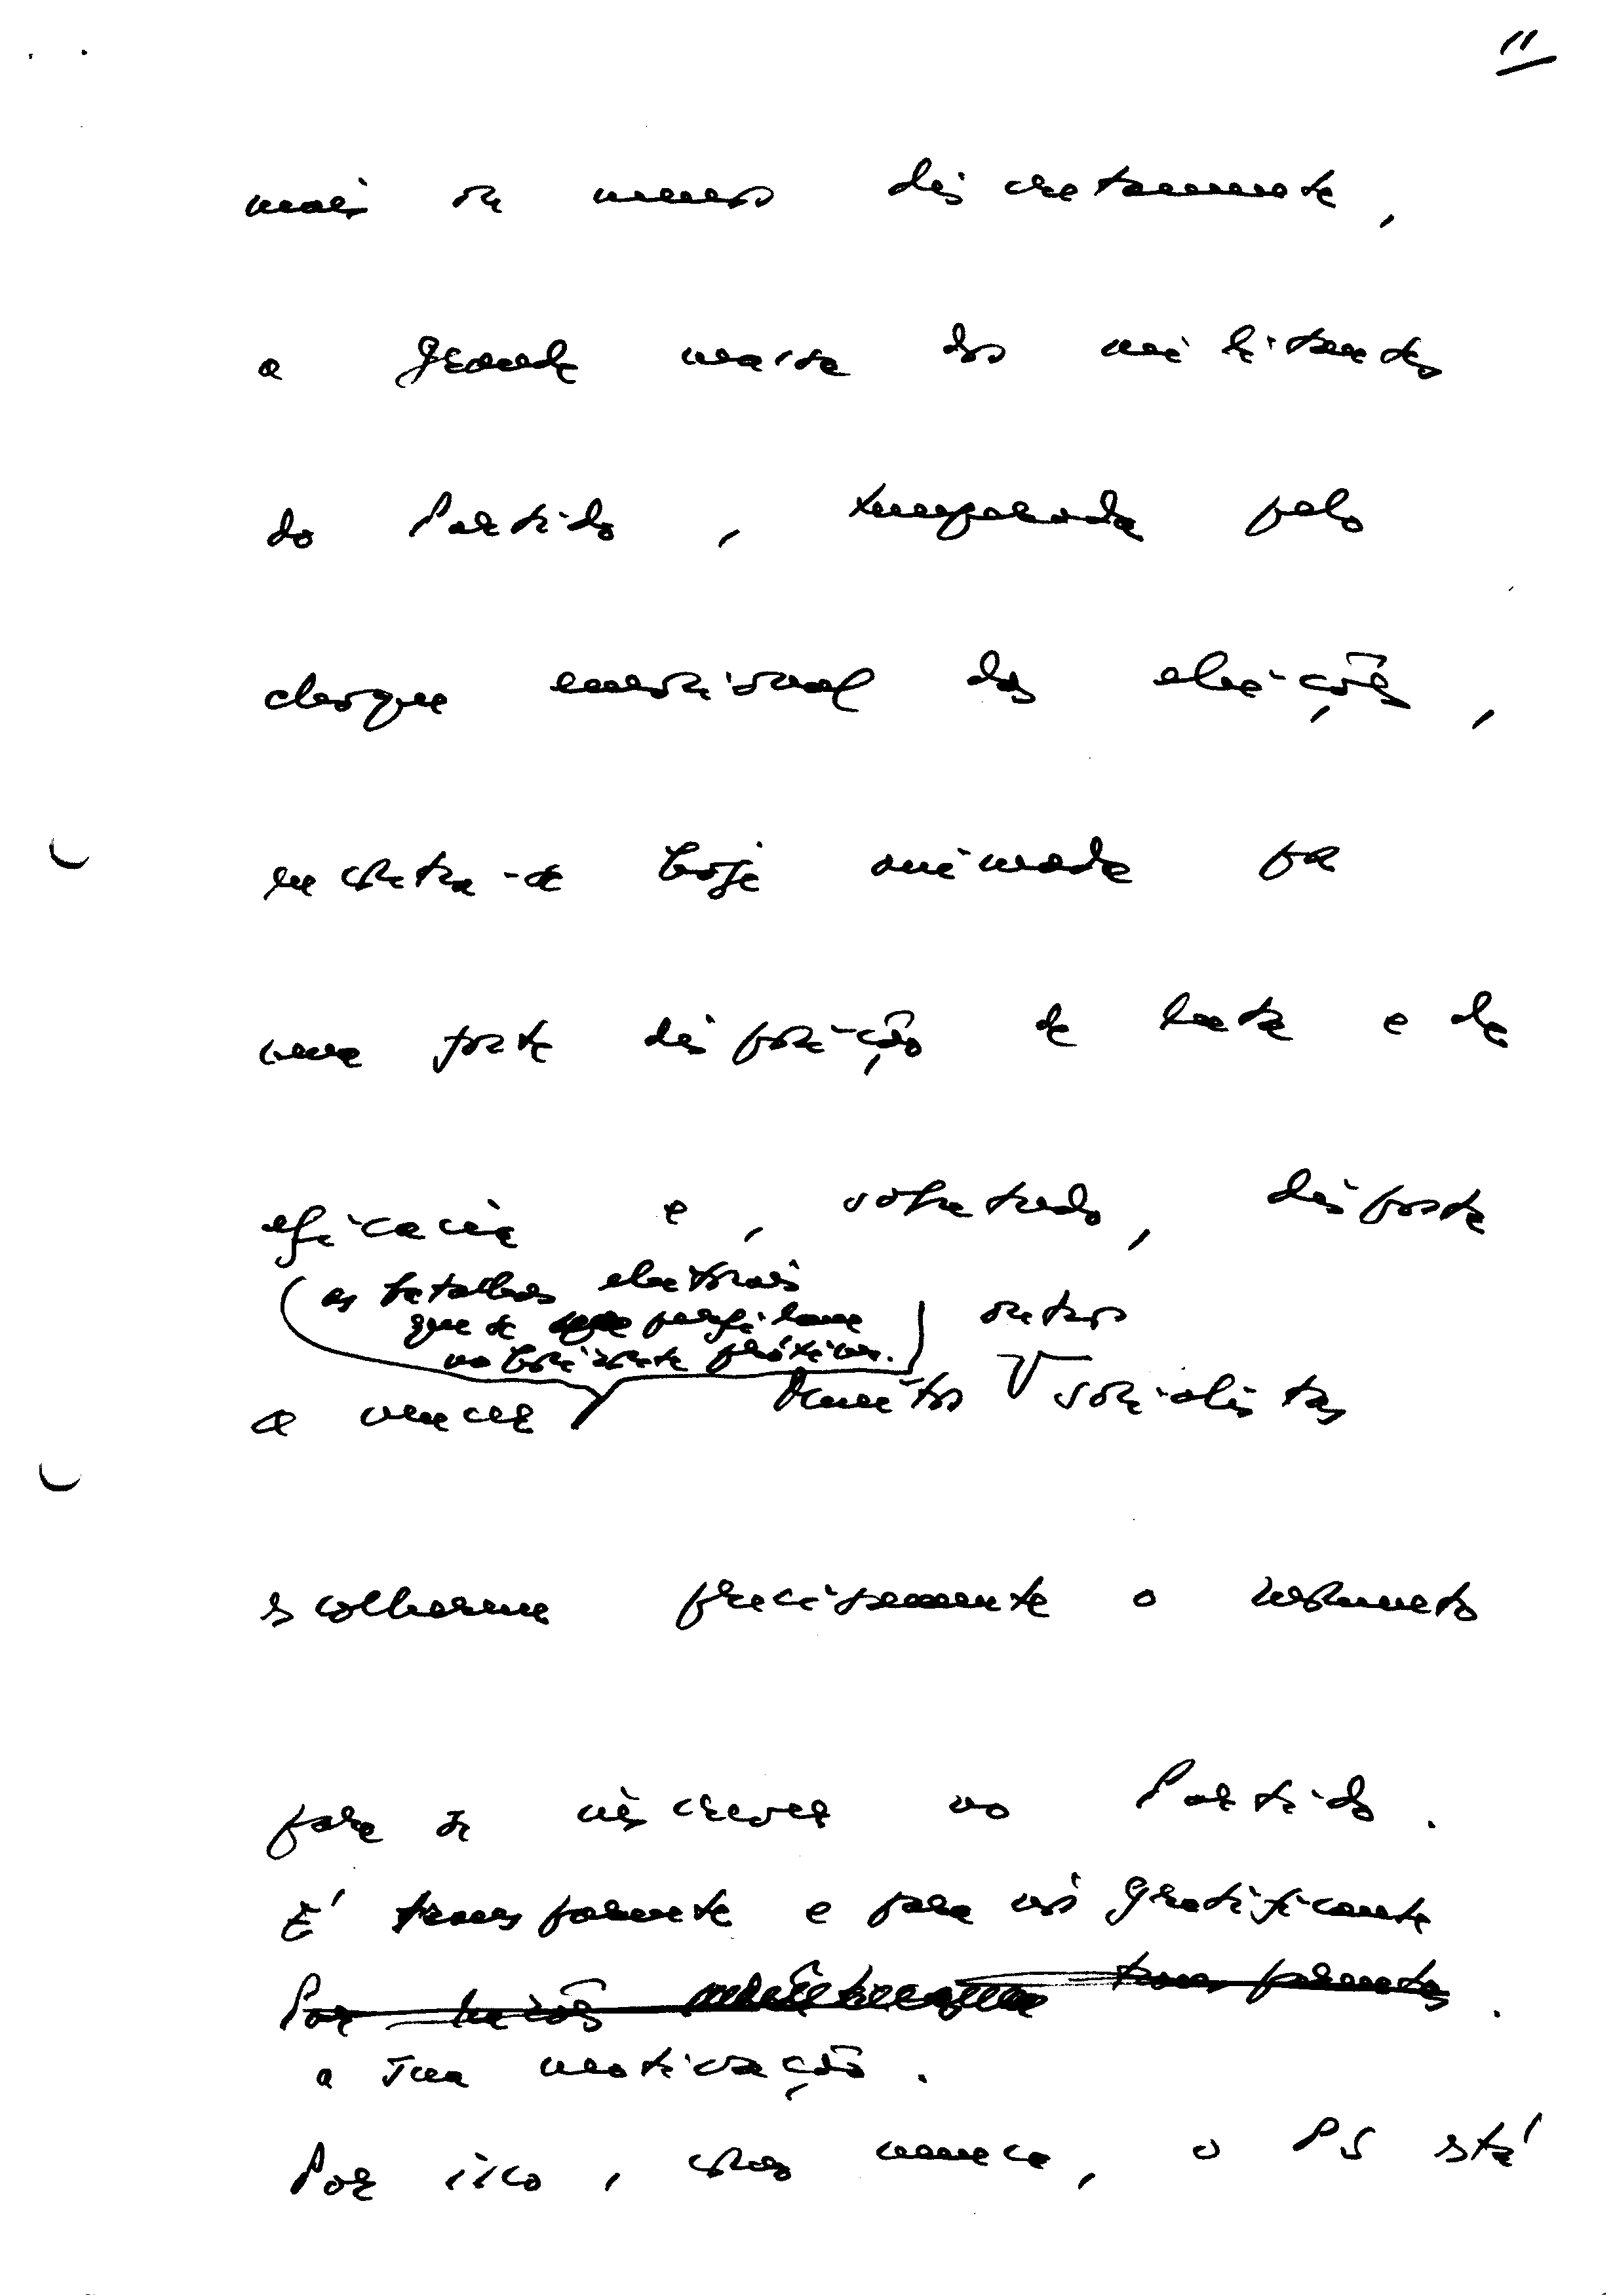 11
mais ou menos discretamente,
a grande massa dos militantes
do Partido, temperada pelo
choque emocional das eleições,
encontra-se hoje animada por
uma forte disposição de luta e de
eficácia e, sobretudo, disposta
a vencer as batalhas eleitorais
que se perfilam
no horizonte próximo.
outros
Muitos socialistas
escolheram precisamente o momento
para se inscrever no Partido.
É transparente e para nós gratificante
Por razões transparentes.
a sua motivação.
Por isso, como nunca, o PS está